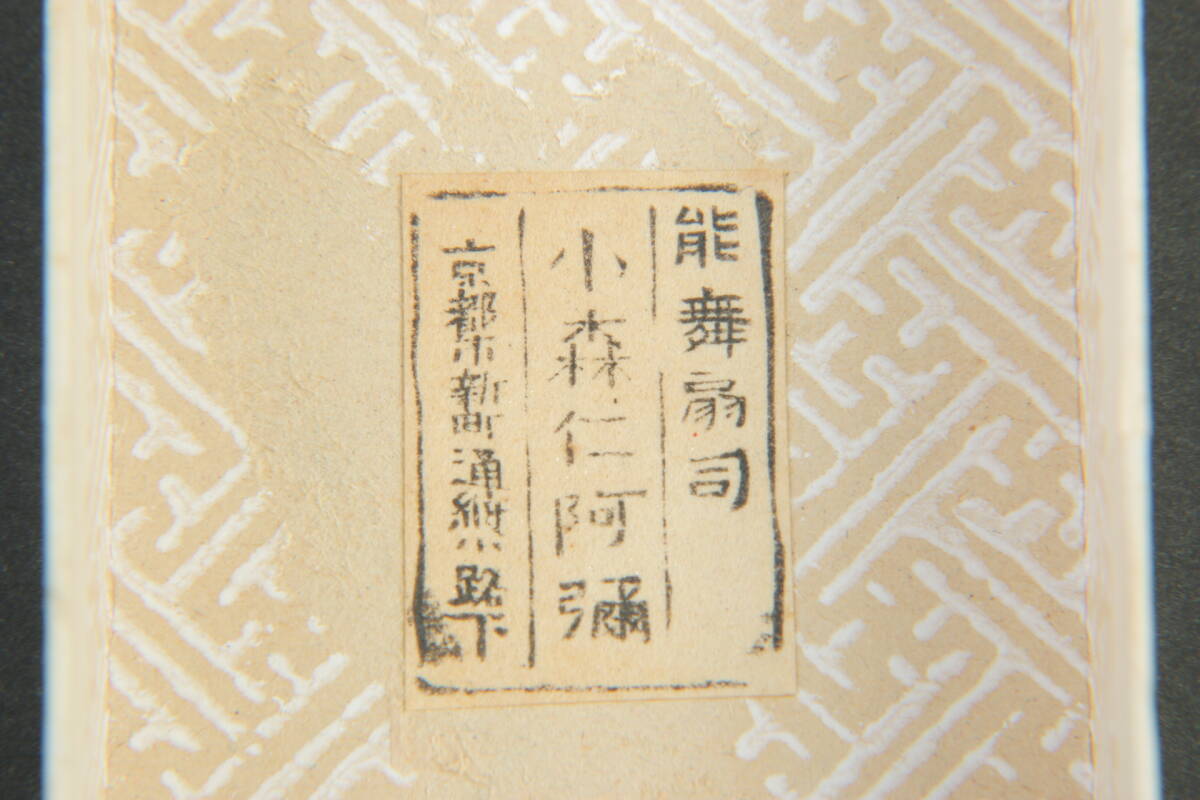 能舞扇司
小森仁阿彌
京都市新町通綾小路下